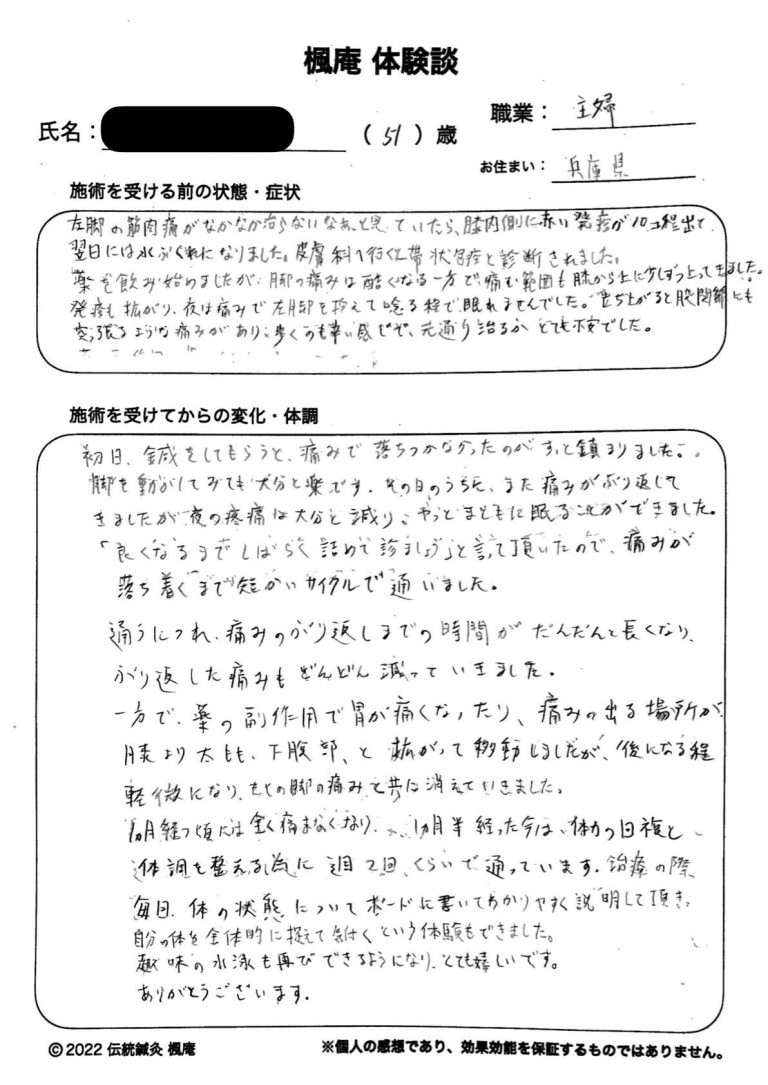 楓庵 体験談
氏名：
（ 51 ）歳
職業： 主婦
お住まい： 兵庫県
施術を受ける前の状態・症状
左脚の筋肉痛がなかなか治らないなあと思っていたら、膝内側に赤い発疹が10コ程出て
翌日には水ぶくれになりました。皮膚科へ行くと帯状疱疹と診断されました。
薬を飲み始めましたが、脚の痛みは酷くなる一方で、痛む範囲も膝から上に少しずつ上ってきました。
発疹も拡がり、夜は痛みで左脚を抱えて唸る程で眠れませんでした。立ち上がると股関節にも
突っ張るような痛みがあり、歩くのも辛い感じで、元通り治るか とても不安でした。
施術を受けてからの変化・体調
初日、鍼をしてもらうと、痛みで 落ちつかなかったのが すっと鎮まりました。
脚を動かしてみても 大分と楽です。その日のうちに、また痛みがぶり返して
きましたが 夜の疼痛は大分と減り、やっとまともに眠ることができました。
「良くなるまでしばらく詰めて診ましょう」と言って頂いたので、痛みが
落ち着くまで短かいサイクルで通いました。
通うにつれ、痛みのぶり返しまでの時間が だんだんと長くなり、
ぶり返した痛みも どんどん減っていきました。
一方で、薬の副作用で胃が痛くなったり、痛みの出る場所が、
膝より太もも、下腹部、と拡がって移動しましたが、後になる程
軽微になり、もとの脚の痛みと共に消えていきました。
1ヵ月経つ頃には全く痛まなくなり、1ヵ月半経った今は、体力の回復と
体調を整える為に 週2回くらいで通っています。治療の際、
毎回、体の状態についてボードに書いてわかりやすく説明して頂き、
自分の体を全体的に捉えて気付くという体験もできました。
趣味の水泳も再びできるようになり、とても嬉しいです。
ありがとうございます。
©2022 伝統鍼灸 楓庵
※個人の感想であり、効果効能を保証するものではありません。